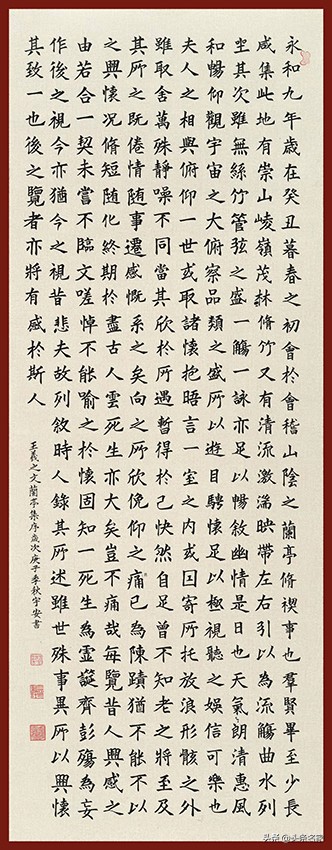 永和九年歲在癸丑暮春之初會於會稽山陰之蘭亭脩禊事也羣賢畢至少長
咸集此地有崇山峻嶺茂林脩竹又有清流激湍映帶左右引以為流觴曲水列
坐其次雖無絲竹管弦之盛一觴一詠亦足以暢敘幽情是日也天氣朗清惠風
和暢仰觀宇宙之大俯察品類之盛所以遊目騁懷足以極視聽之娛信可樂也
夫人之相與俯仰一世或取諸懷抱晤言一室之內或因寄所托放浪形骸之外
雖取舍萬殊靜噪不同當其欣於所遇暫得於己快然自足曾不知老之將至及
其所之既倦情隨事遷感慨系之矣向之所欣俛仰之痛已為陳蹟猶不能不以
之興懷況脩短隨化終期於盡古人雲死生亦大矣豈不痛哉每覽昔人興感之
由若合一契未嘗不臨文嗟悼不能喻之於懷固知一死生為虛誕齊彭殤為妄
作後之視今亦猶今之視昔悲夫故列敘時人錄其所述雖世殊事異所以興懷
其致一也後之覽者亦將有感於斯人
王羲之文蘭亭集序歲次庚子季秋宇安書
头条@头条名家